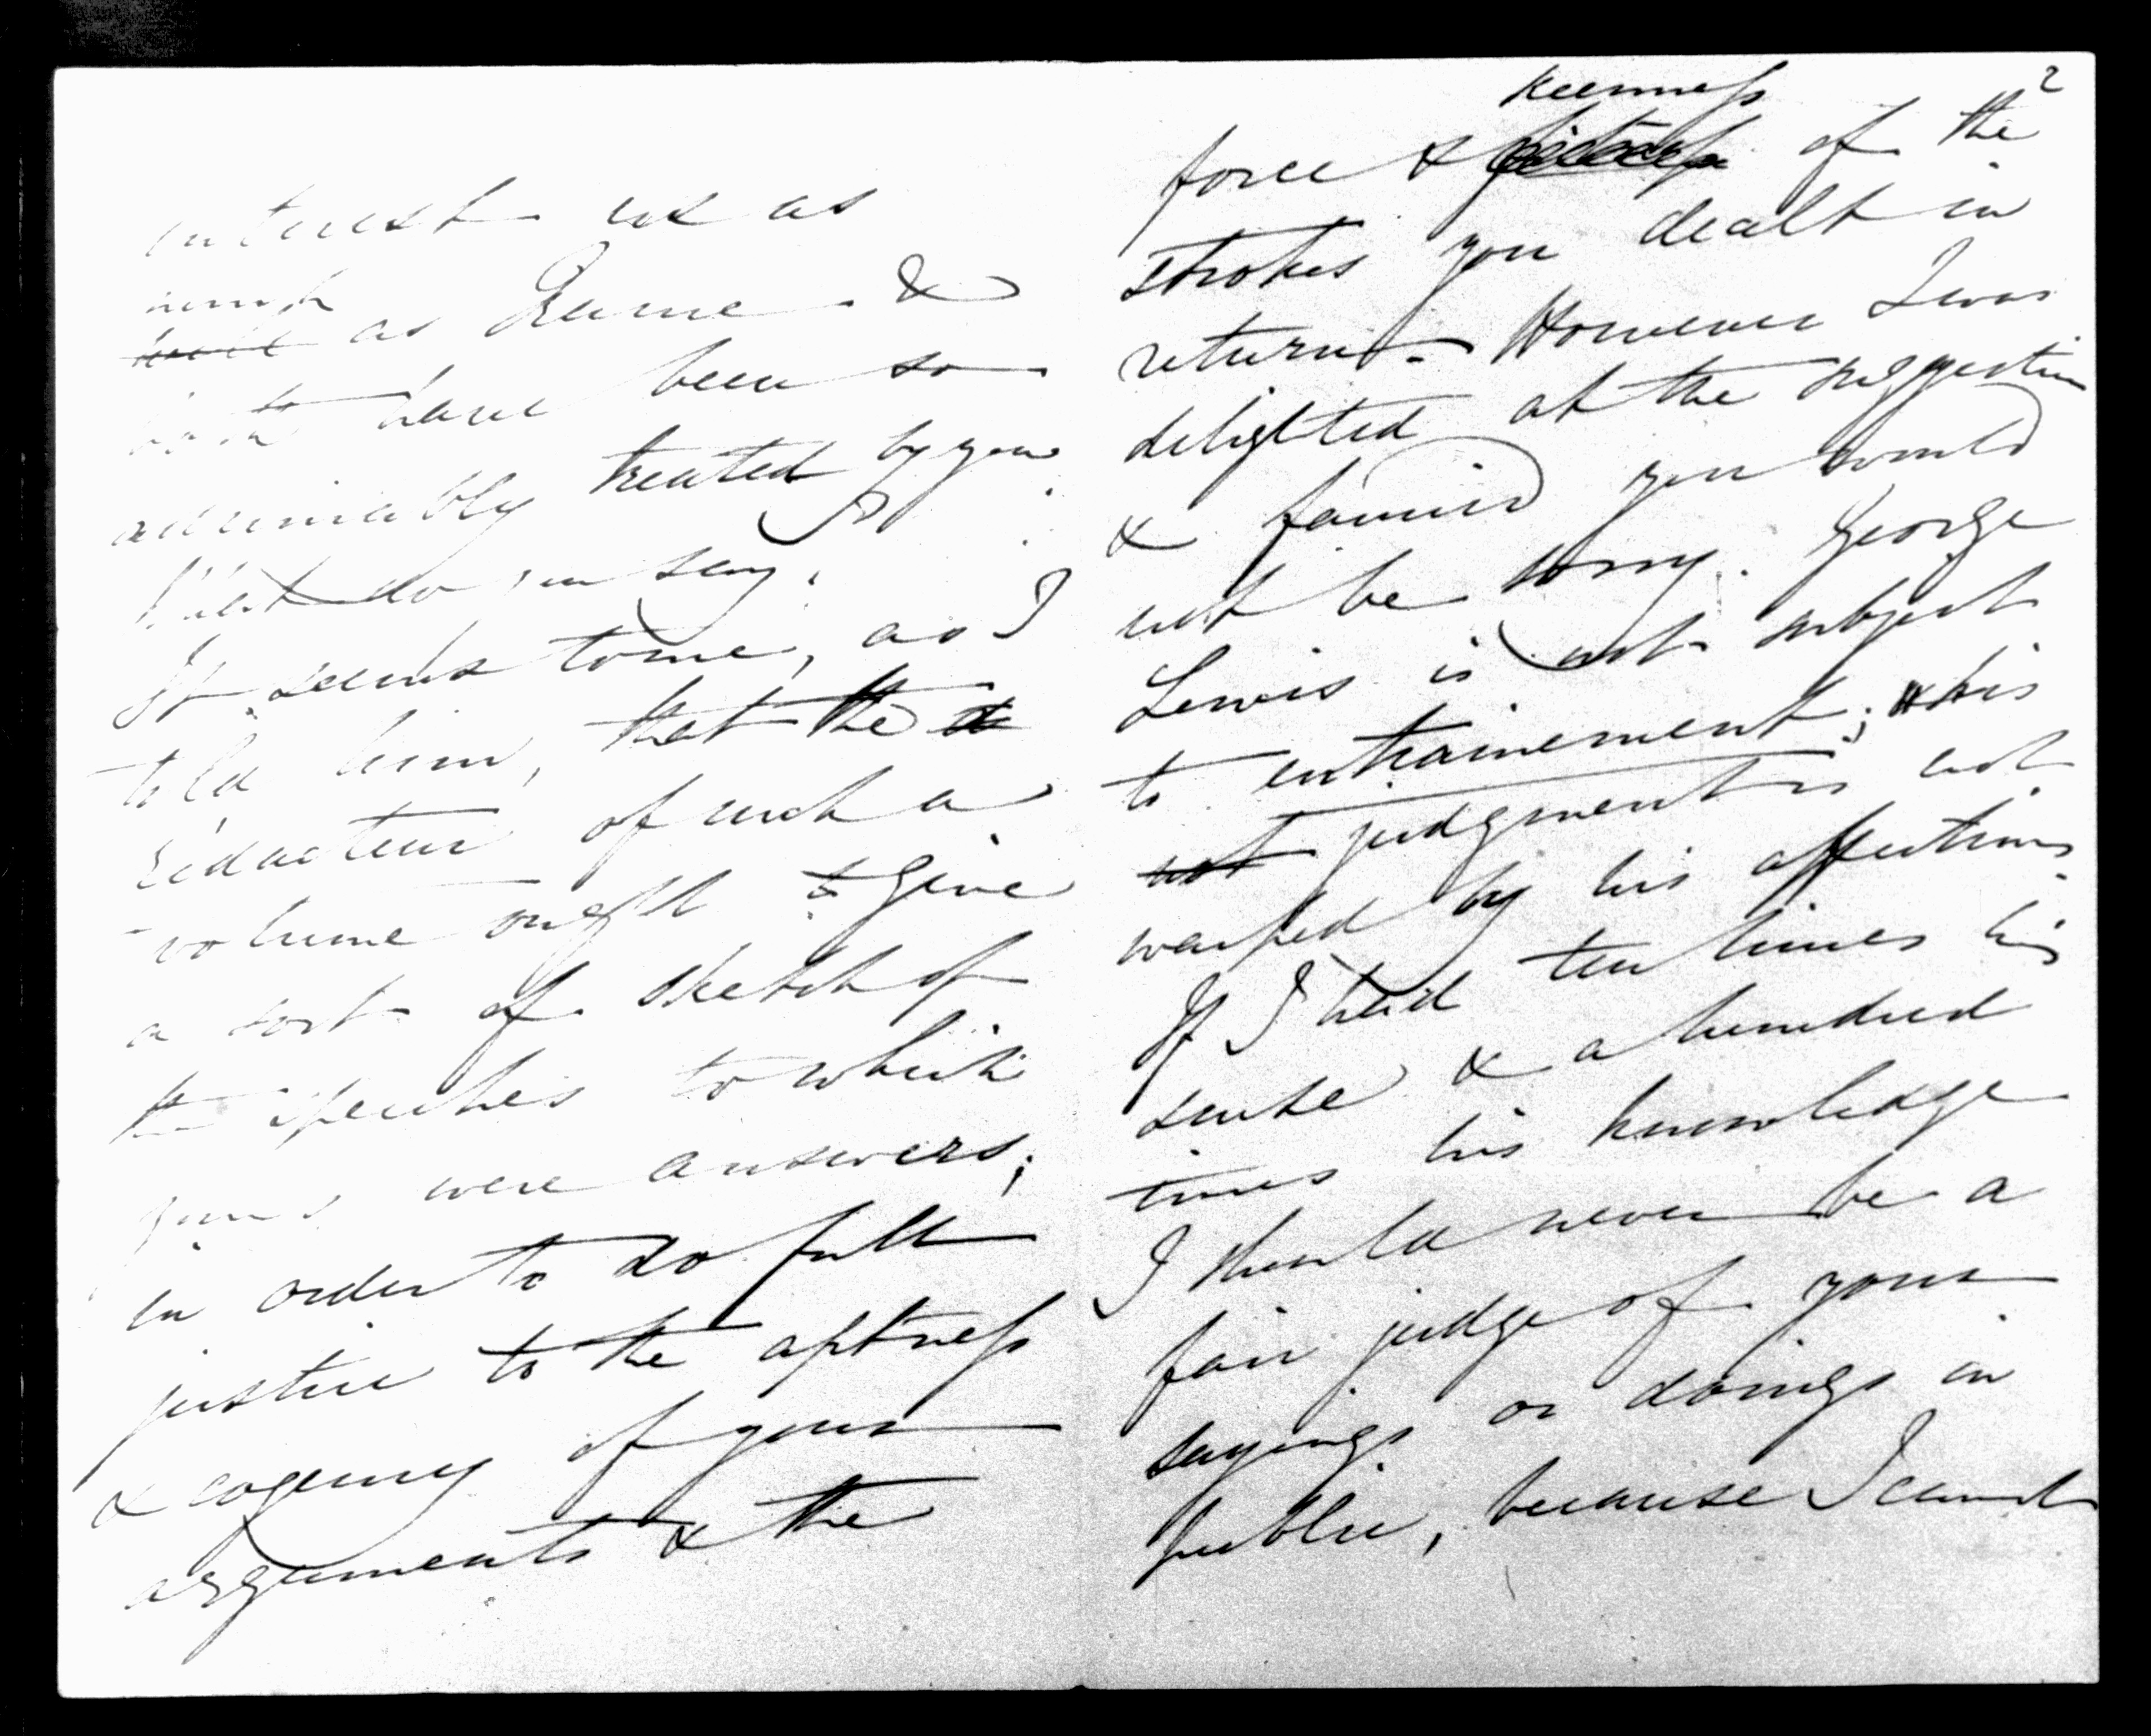 interest us as
much
as Rome &
both have been so
admirably treated by you
What do you say.
It seems to me, as I
told him, that the
rédacteur of such a
volume ought to give
a sort of sketch of
the speeches to which
yours were answers;
in order to do full
justice to the aptness
& cogency of your
arguments & the
2
keenness
force & of the
strokes you dealt in
return. However I was
delighted at the suggestion
& fancied you would
not be sorry. George
Lewis is not subject
to entrainement; & his
not judgment is not
warped by his affections.
If I had ten times his
sense & a hundred
times his knowledge
I should never be a
fair judge of your
sayings or doings in
public, because I cannot